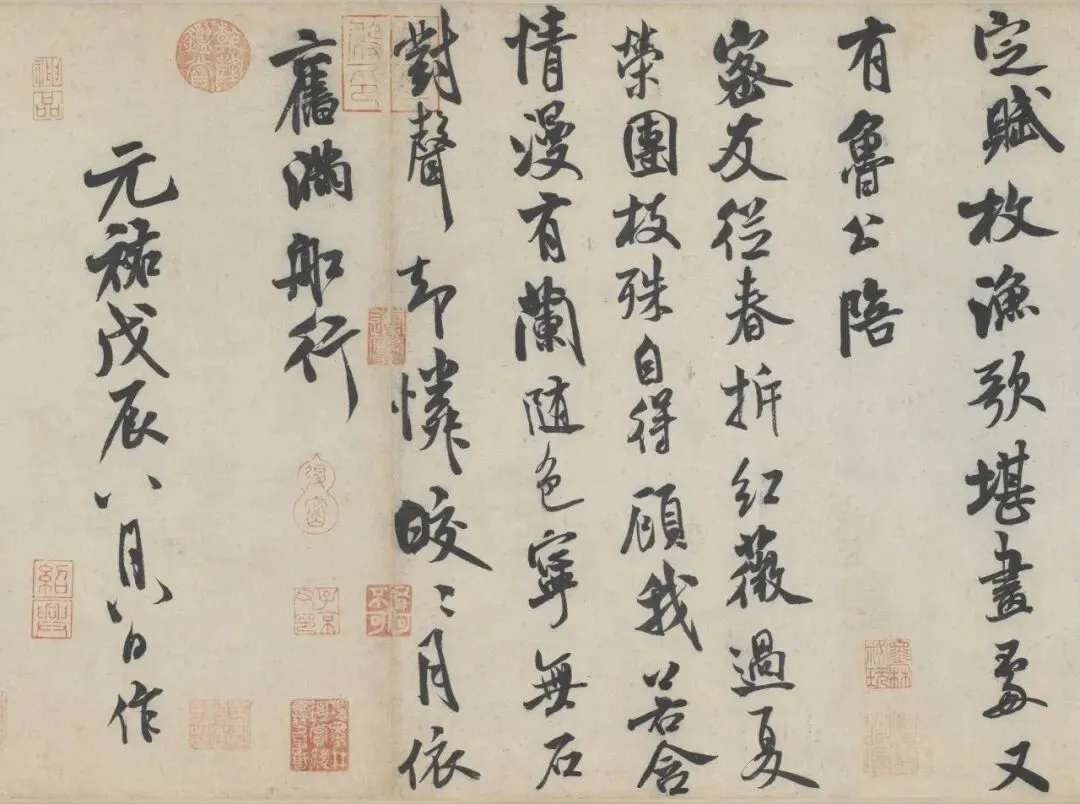 定賦枚漁歌堪畫處又
有魯公陪
密友從春拆紅薇過夏
榮團枝殊自得顧我若含
情漫有蘭隨色寧無石
對聲却憐皎〻月依
舊滿船行
元祐戊辰八月八日作
神品
紹興